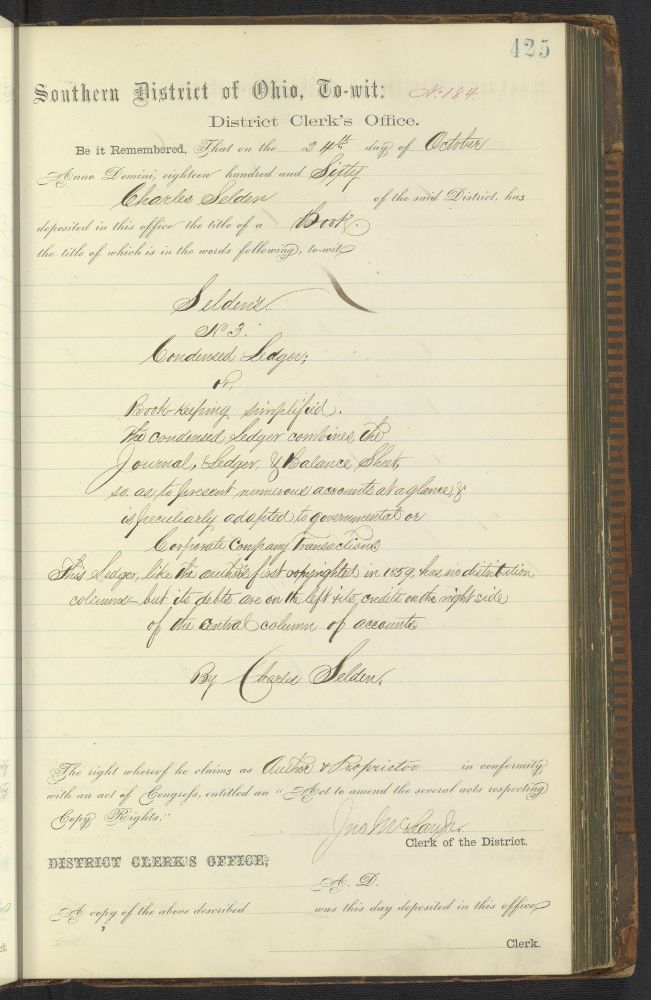 125
Southern District of Ohio, To-wit: No. 184
District Clerk's Office.
Be it Remembered, That on the 24th day of October
Anno Domini, eighteen hundred and Sixty
Charles Selden of the said District, has
deposited in this office the title of a Book.
the title of which is in the words following, to-wit,
Selden's
No 3.
Condensed Ledger;
or
Book-keeping simplified.
The condensed Ledger combines the
Journal, Ledger, & Balance Sheet,
so as to present numerous accounts at a glance, &
is peculiarly adapted to governmental or
Corporate Company transactions
This Ledger, like the author's first copyrighted in 1859, has no distribution
columns - but its debts are on the left & its credits on the right side
of the central column of accounts
By Charles Selden.
The right whereof he claims as Author & Proprietor in conformity
with an act of Congress, entitled an "Act to amend the several acts respecting
Copy Rights."
Jno
Clerk of the District.
DISTRICT CLERK'S OFFICE,
A. D.
A copy of the above described was this day deposited in this office,
Clerk.